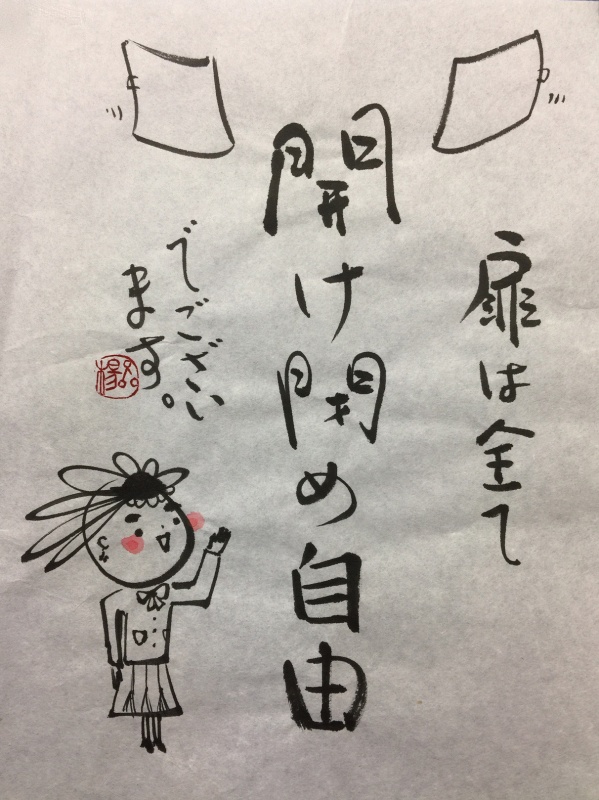 扉は全て
開け閉め自由
でございます。